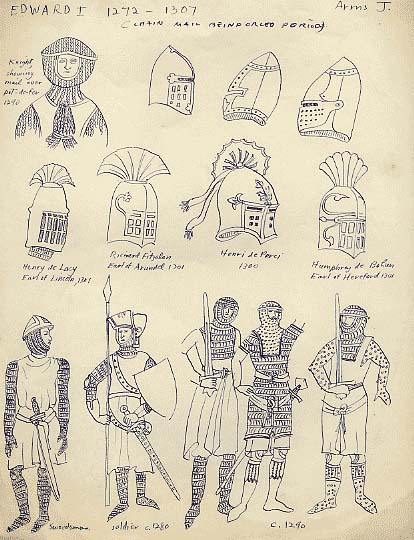 EDWARD I 1272 - 1307
Arms I.
(CHAIN MAIL REINFORCED PERIOD)
Knight
showing
mail over
1290
Henry de Lacy
Earl of Lincoln, 1301
Richard Fitzalan
Earl of Arundel 1301
Henri de Perci
1300
Humphrey de Bohun
Earl of Hereford 1301
Swordsman
soldier c. 1280
c. 1290